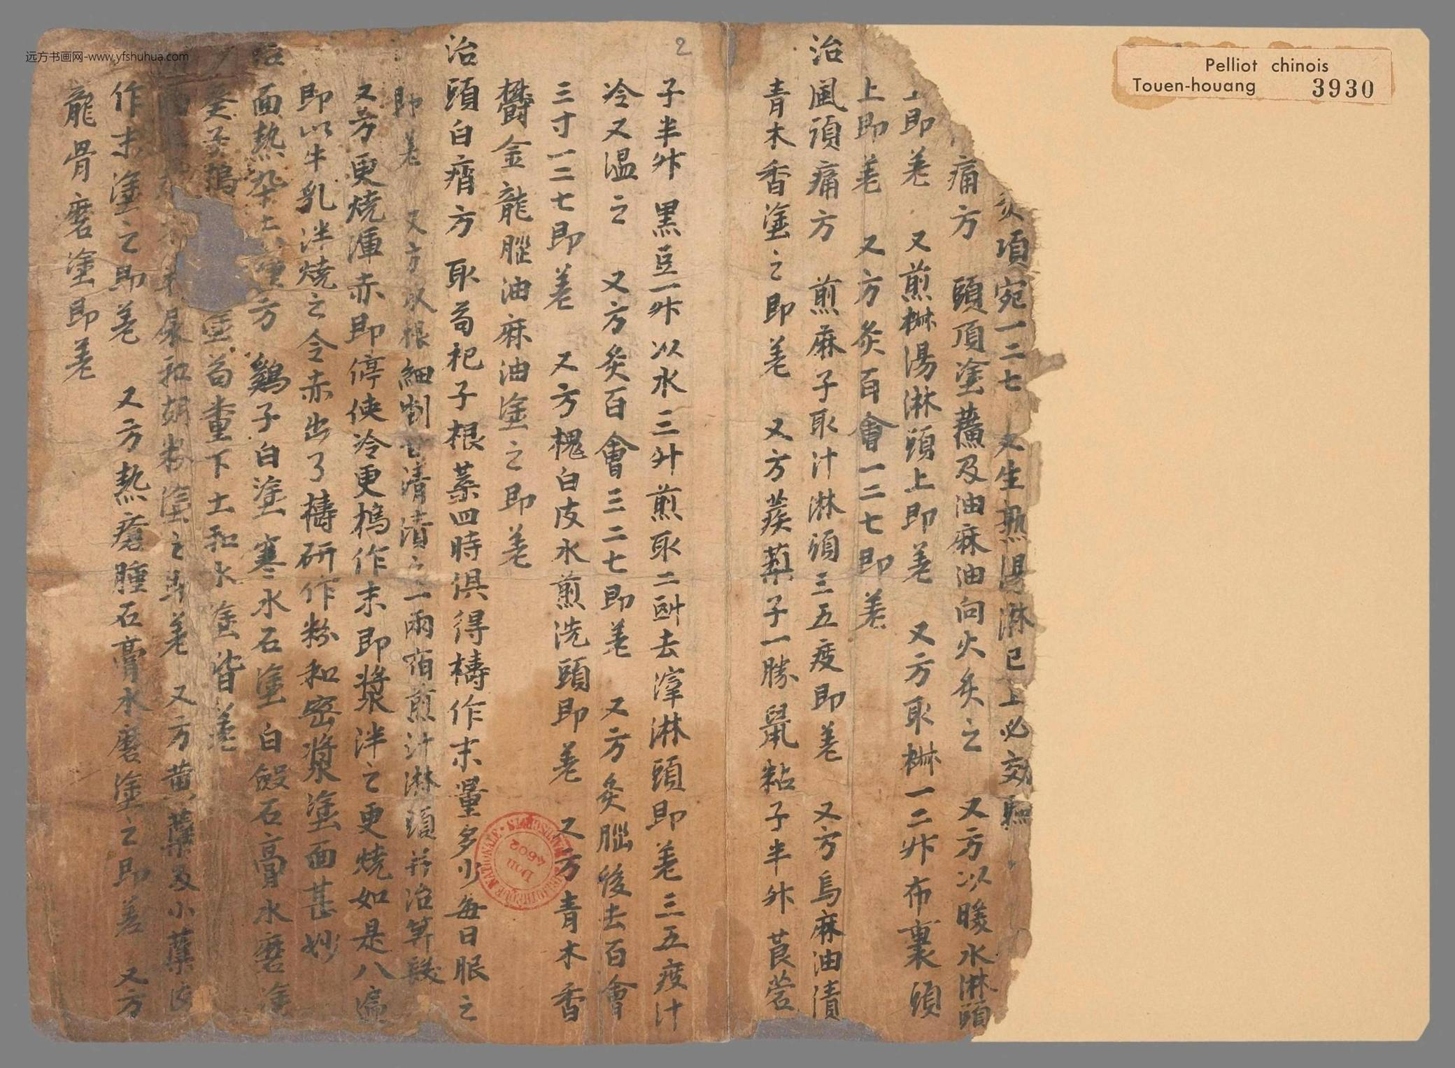 远方书画网-www.yfshuhua.com
Pelliot chinois
Touen-houang 3930
2
項宛一二七 又生熟湯淋已上必効
痛方 頭頂塗蘸及油麻油向火炙之 又方以暖水淋頭
上即差 又煎椒湯淋頭上即差 又方取椒一二升布裹頭
上即差 又方灸百會一二七即差
治風頭痛方 煎麻子取汁淋頭三五度即差 又方烏麻油漬
青木香塗之即差 又方蒺䔧子一勝鼠粘子半升莨菪
子半升黑豆一升以水三升煎取二㪷去滓淋頭即差三五度汁
冷又温之 又方灸百會三二七即差 又方灸腦後去百會
三寸一二七即差 又方槐白皮水煎洗頭即差 又方青木香
欝金龍腦油麻油塗之即差
治頭白膌方 取苟杞子根葉四時俱得擣作末量多少每日服之
即差 又方以根細剉甘清漬之一兩宿煎汁淋頭并治箅髮
又方更燒渾赤即停使冷更擣作末即漿泮之更燒如是八遍
即以牛乳泮燒之令赤出了擣研作粉和密漿塗面甚妙
治面熱 方 鷄子白塗 寒水石塗 白鍛石膏水磨塗
塗 塗苟 重下土和水塗皆差
尿和胡粉塗之即差 又方黄蘗及小蘗
作末塗之即差 又方熱瘡腫石膏水磨塗之即差 又方
龍骨磨塗即差
BIBLIOTHEQUE NATIONALE MANUSCRITS
Don
4502